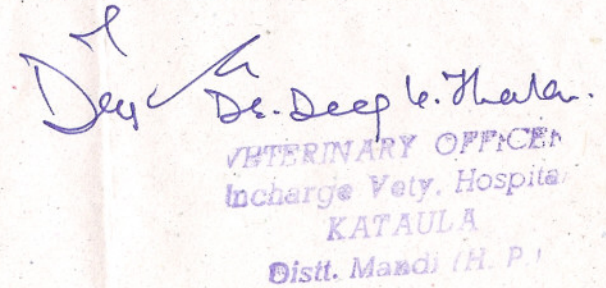 Deep Dr. Deep K. Thakur.
VETERINARY OFFICER
Incharge Vety. Hospital
KATAULA
Distt. Mandi (H. P.)